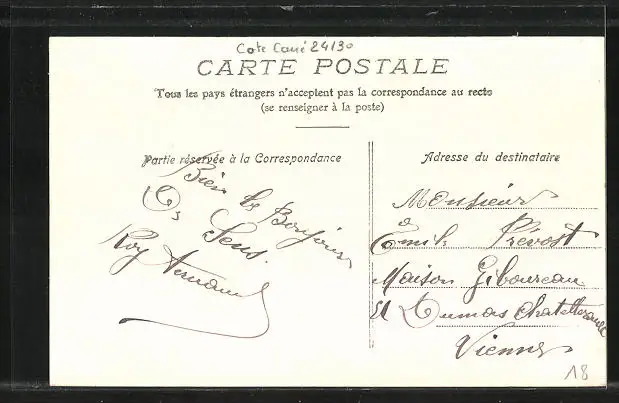 Cote Carré 24/30
CARTE POSTALE
Tous les pays étrangers n'acceptent pas la correspondance au recto
(se renseigner à la poste)
Partie réservée à la Correspondance
Adresse du destinataire
Bien le Bonjour
Sens.
Roy Fernand
Monsieur
à
Emile Prévost
Maison Giboureau
et Dumas Chatellerault
Vienne
18